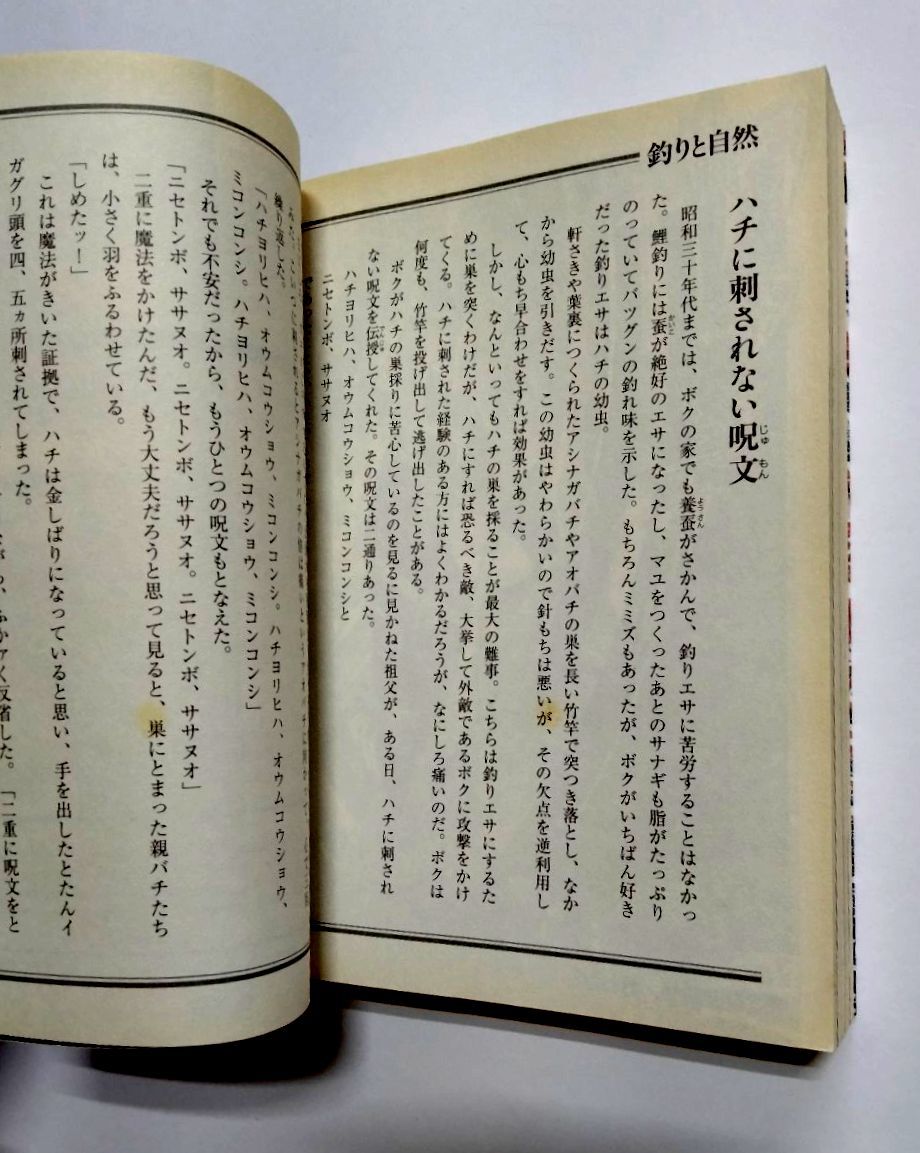 釣りと自然
ハチに刺されない呪文
昭和三十年代までは、ボクの家でも養蚕がさかんで、釣りエサに苦労することはなかっ
た。鯉釣りには蚕が絶好のエサになったし、マユをつくったあとのサナギも脂がたっぷり
のっていてバツグンの釣れ味を示した。もちろんミミズもあったが、ボクがいちばん好き
だった釣りエサはハチの幼虫。
軒さきや葉裏につくられたアシナガバチやアオバチの巣を長い竹竿で突つき落とし、なか
から幼虫を引きだす。この幼虫はやわらかいので針もちは悪いが、その欠点を逆利用し
て、心もち早合わせをすれば効果があった。
しかし、なんといってもハチの巣を採ることが最大の難事。こちらは釣りエサにするた
めに巣を突くわけだが、ハチにすれば恐るべき敵、大挙して外敵であるボクに攻撃をかけ
てくる。ハチに刺された経験のある方にはよくわかるだろうが、なにしろ痛いのだ。ボクは
何度も、竹竿を投げ出して逃げ出したことがある。
ボクがハチの巣採りに苦心しているのを見るに見かねた祖父が、ある日、ハチに刺され
ない呪文を伝授してくれた。その呪文は二通りあった。
ハチヨリヒハ、オウムコウショウ、ミコンコンシと
ニセトンボ、ササヌオ
繰り返した。
「ハチヨリヒハ、オウムコウショウ、ミコンコンシ。ハチヨリヒハ、オウムコウショウ、
ミコンコンシ。ハチヨリヒハ、オウムコウショウ、ミコンコンシ」
それでも不安だったから、もうひとつの呪文もとなえた。
「ニセトンボ、ササヌオ。ニセトンボ、ササヌオ。ニセトンボ、ササヌオ」
二重に魔法をかけたんだ、もう大丈夫だろうと思って見ると、巣にとまった親バチたち
は、小さく羽をふるわせている。
「しめたッ！」
これは魔法がきいた証拠で、ハチは金しばりになっていると思い、手を出したとたんイ
ガグリ頭を四、五ヵ所刺されてしまった。
反省した。「二重に呪文をと